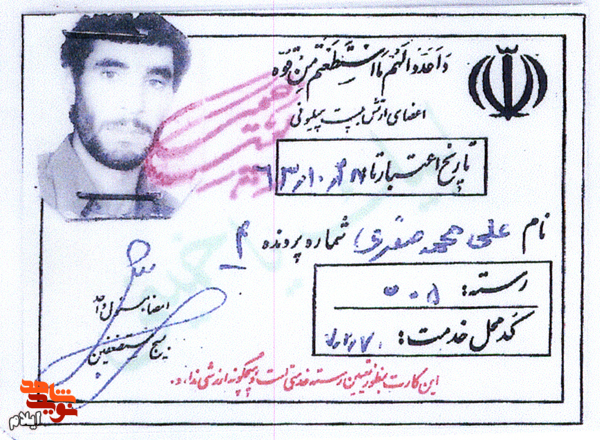 وَاَعِدّوُا لَهُمْ مَا اسْتَطَعْتُمْ مِنْ قُوَّة
اعضای ارتش بیست میلیونی
تاریخ اعتبار تا
نام علی محمد صفری شماره پرونده ۴
رسته:
کد محل خدمت:
امضاء مسئول واحد
بسیج مستضعفین
این کارت بمنظور تعیین رسته خدمتی است و هیچگونه ارزشی ندارد.
نوید شاهد
ایلام